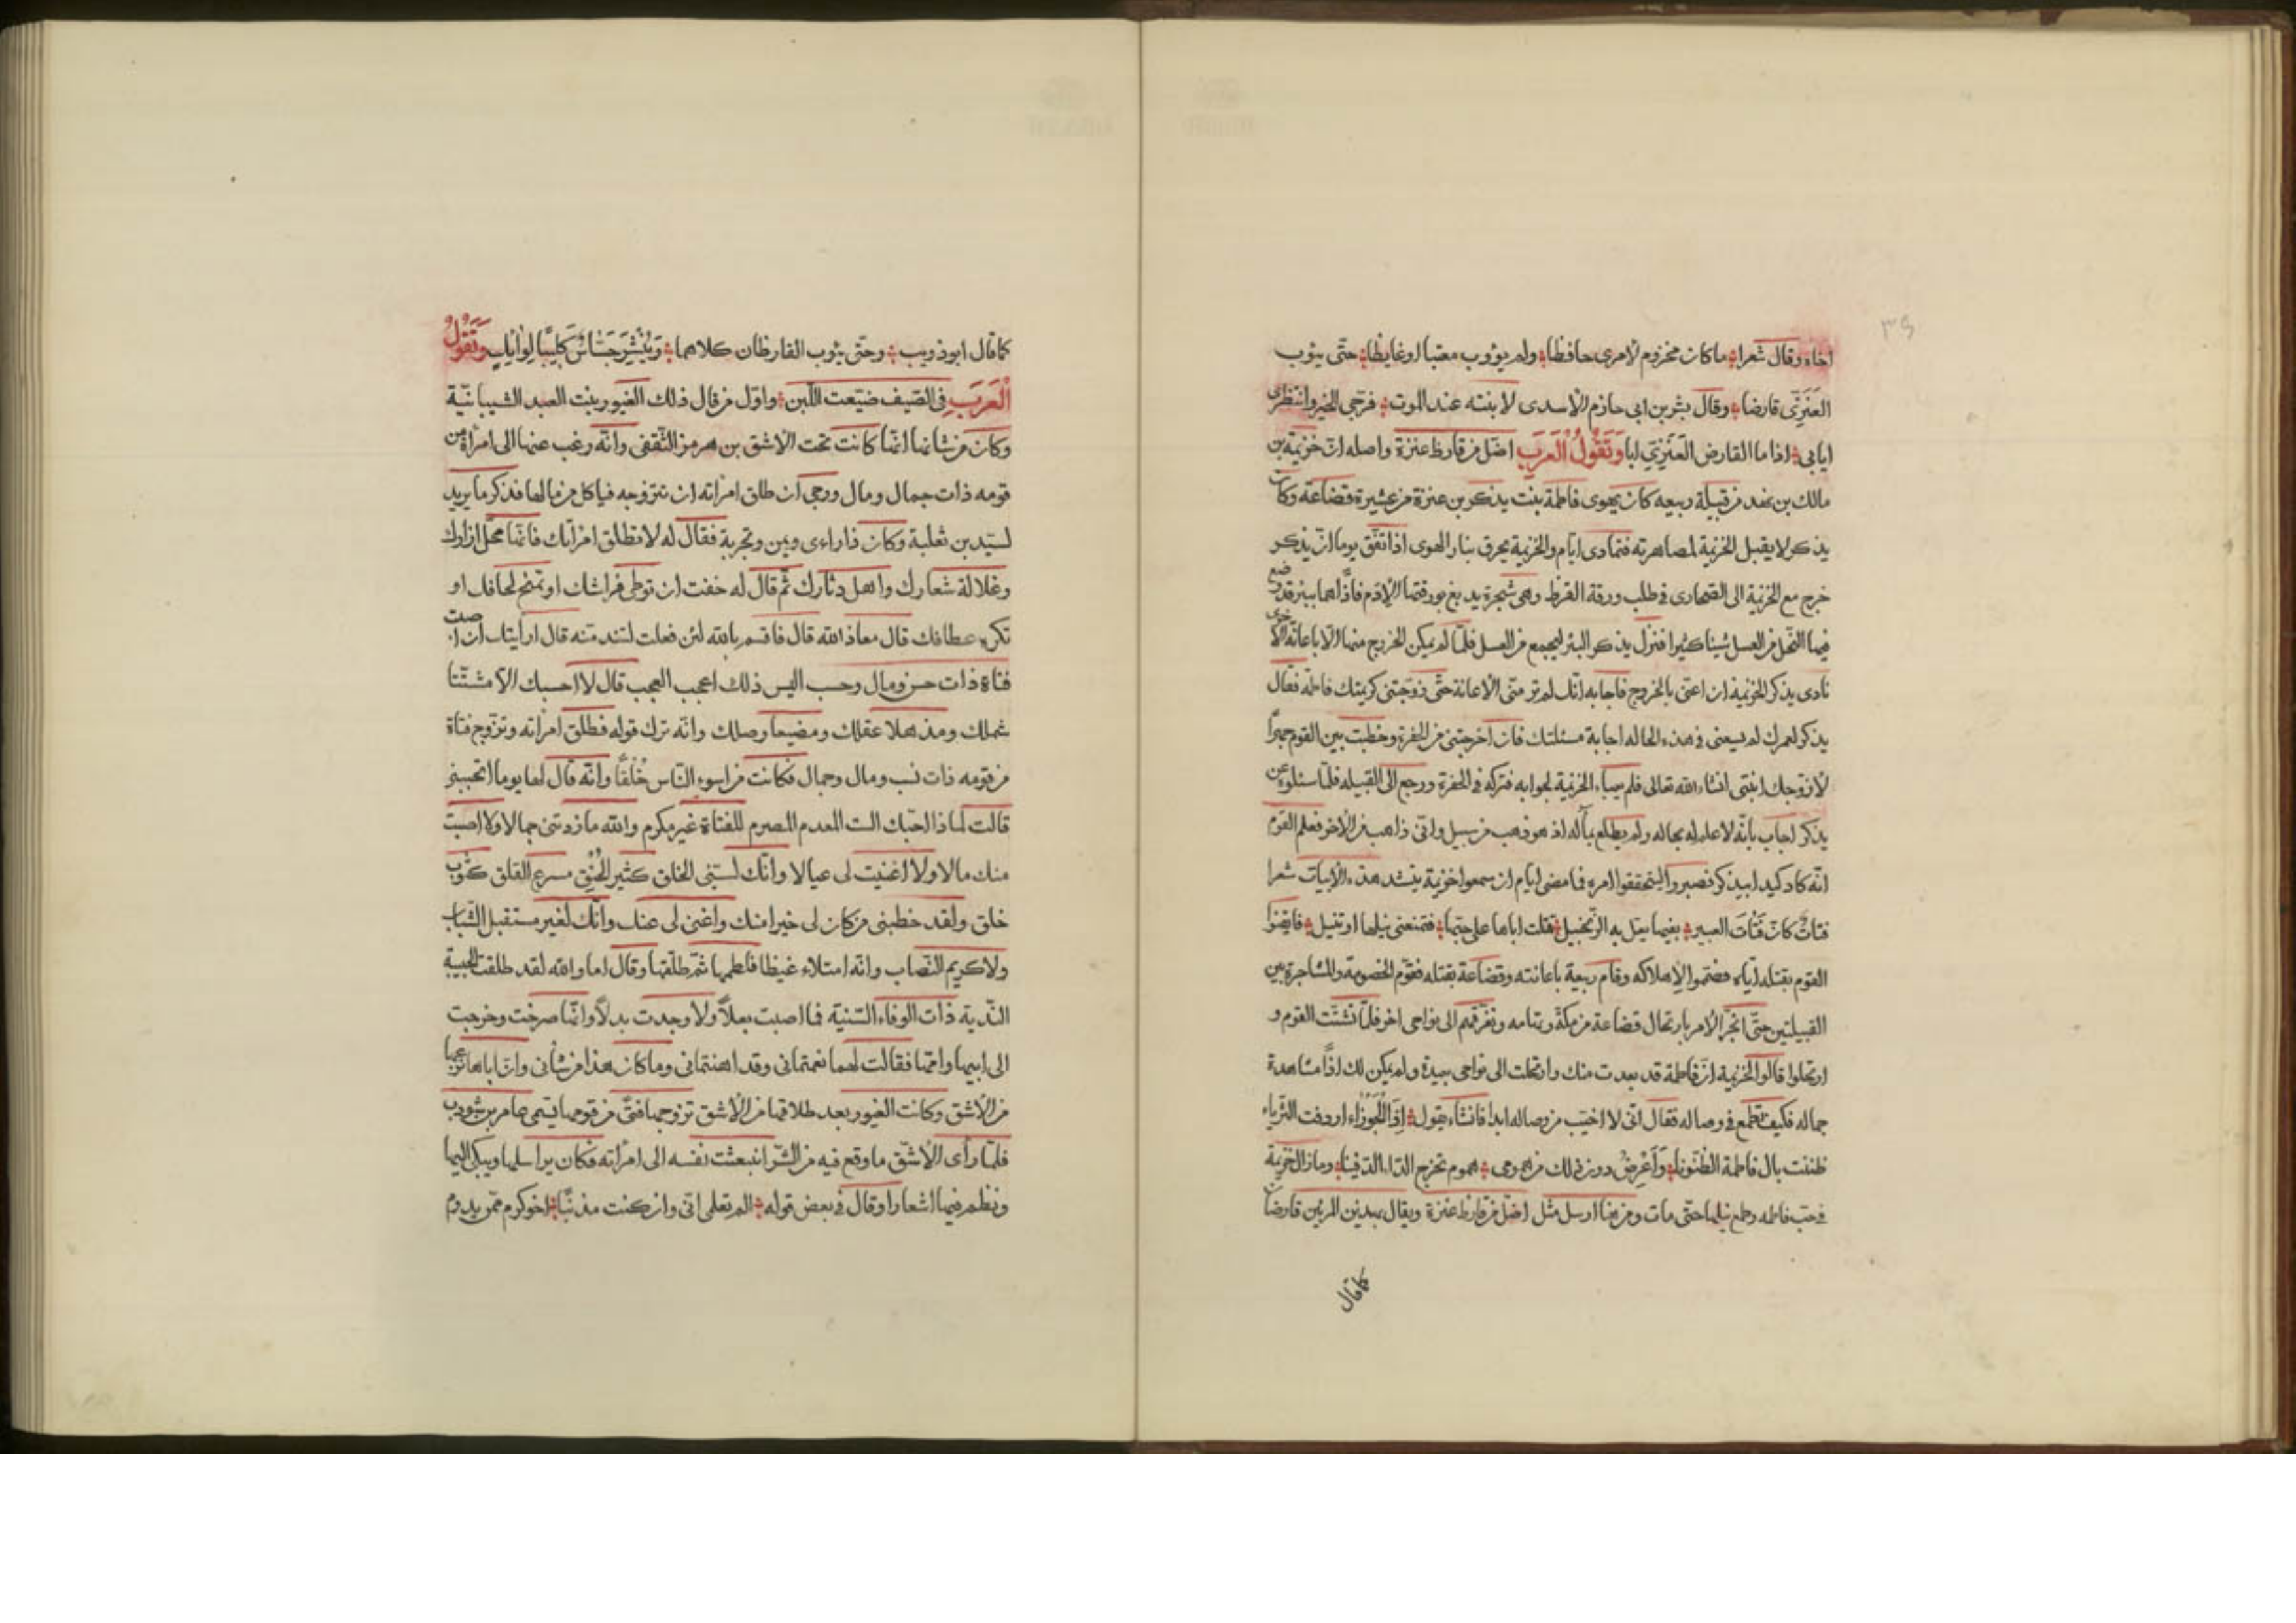 اخاه وقال شعرا ماكان مخزوم لامرى حافظا ولم يؤوب معتبا اوغايظا حتّى يئوب
العَنَزِىّ قارضا وقال بشر بن ابى حازم الاسدى لابنته عند الموت فرجّى الخير وانتظرى
ايابى اذا ما القارض العَنَزِىّ ابا وَتَقُولُ الْعَرَبِ اضلّ من قارظ عنزة واصله انّ خزيمة بن
مالك بن نهد من قبيلة ربيعه كان يهوى فاطمة بنت يذكر بن عنزة من عشيرة قضاعة وكان
يذكر لا يقبل الخزيمة لمصاهرته فتمادى ايّام والخزيمة يحرق بنار الهوى اذ اتّفق يوما انّ يذكر
خرج مع الخزيمة الى القحارى فى طلب ورقة القرظ وهى شجرة يدبغ بورقتها الادم فاذا هما ببئر قد وضع
فيها النّحل من العسل شيئا كثيرا فنزل يذكر البئر ليجمع من العسل فلمّا لم يمكن الخروج منها الّا باعانة الاخرى
نادى يذكر الخزيمة ان اعنّى بالخروج فاجابه انّك لم تر منّى الاعانة حتّى زوّجتنى كريمتك فاطمه فقال
يذكر لعمرك لم يسعنى فى هذه الحاله اجابة مسئلتك فان اخرجتنى من الحفرة وخطبت بين القوم جهرًا
لازوّجك ابنتى انشاء الله تعالى فلم يعباء الخزيمة لجوابه فتركه فى الحفرة ورجع الى القبيله فلمّا سئلوه عن
يذكر اجاب بانّه لا علم له بحاله ولم يطّلع بمآله اذ هو ذهب من سبيل وانّى ذاهب من الاخر فعلم القوم
انّه كاد كيدا بيذكر فصبروا ليتحقّقوا امره فما مضى ايّام ان سمعوا خزيمة ينشد هذه الابيات شعرا
فتاتٌ كانّ فَتَاتَ العبير بفيها يعلّ به الزّنجبيل قتلت اباها على حبّها فتمنعنى نيلها او تنيل فايقنوا
القوم بقتله ايّاه فضمّوا لاهلاكه وقام ربيعة باعانته وقضاعة بقتله فقوّم الخصومة والمشاجرة بين
القبيلتين حتّى انجّر الامر بارتحال قضاعة من مكّة وتهامه وتفرّقهم الى نواحى اخر فلمّا تشتّت القوم و
ارتحلوا قالوا الخزيمة انّ فاطمة قد بعدت منك وارتحلت الى نواحى بعيدة ولم يكن لك اذًا مشاهدة
جماله فكيف تطمع فى وصاله فقال انّى لا اخيّب من وصاله ابدا فانشاء يقول اِذَا الْجَوْزَاءِ اردفت الثّرياء
ظننت بال فاطمة الظّنونا وَاَعْرِضُ دون ذلك من همومى هموم تخرج الدّاء الدّفينا وماز الخزيمة
فى حبّ فاطمه وطمع نيلها حتّى مات ومن هنا ارسل مثل اضلّ من قارظ عنزة ويقال بهذين المرئين قارضان
كما قال
كما قال ابو ذويب وحتّى يئوب القارظان كلاهما وَيُنْشِرَ جَسَّاسٌ كَلِيْبًا لِوَايْلٍ وَتَقُولُ
الْعَرَبِ فى الصّيف ضيّعت اللّبن واوّل من قال ذلك الغيور بنت العبد الشيبانيّة
وكان من شانها انّها كانت تحت الاشق بن هرمز الثّقفى وانّه رغب عنها الى امراة من
قومه ذات جمال ومال ورجى ان طلق امراته ان تتزوجه فياكل من مالها فذكر ما يريد
لسيّد بن ثعلبة وكان ذا راءى ويمن وتجربة فقال له لا تطلق امراتك فانّها محلّ ازارك
وغلالة شعارك واهل دثارك ثمّ قال له خفت ان توطى فراشك او تمنح لحافك او
تكره عطافك قال معاذ الله قال فاقسم بالله لئن فعلت لتندمنّه قال ارأيتك ان اصبت
فتاة ذات حسن ومال وحسب اليس ذلك اعجب العجب قال لا احسبك الّا مشتّتا
شملك ومذهلا عقلك ومضيعا وصلك وانّه ترك قوله فطلق امراته وتزوج فتاة
من قومه ذات نسب ومال وجمال فكانت من اسوء النّاس خُلقًا وانّه قال لها يوما اتحبينى
قالت لماذا احبّك الست المعدم المصرم للفتاة غير مكرم والله ما زدتنى جمالا ولا اصبت
منك مالا ولا اغنيت لى عيالا وانّك لسيّئ الخلق كثير الحُنْق مسرع القلق كثوب
خلق ولقد خطبنى من كان لى خيرا منك واغنى لى عنك وانّك لغير مستقبل الشّباب
ولا كريم النّصاب وانّه امتلاء غيظا فلطمها ثمّ طلّقها وقال اما والله لقد طلقت الحبيبة
النّدية ذات الوفاء السّنية فما اصبت بعلاً ولا وجدت بدلاً وانّها صرخت وخرجت
الى ابيها وامّها فقالت لهما نعمتمانى وقد اهنتمانى وما كان هذا من شأنى وانّ اباها نزعها
من الاشق وكانت الغيور بعد طلاقها من الاشق تزوجها فتىً من قومها يسمى عامر بن شوذب
فلمّا رأى الاشق ما وقع فيه من الشرّ انبعثت نفسه الى امرأته فكان يراسلها ويبكى اليها
ونظم فيها اشعارا وقال فى بعض قوله الم تعلمى انّى وان كنت مذنبًا اخو كرم ممّن يدوم